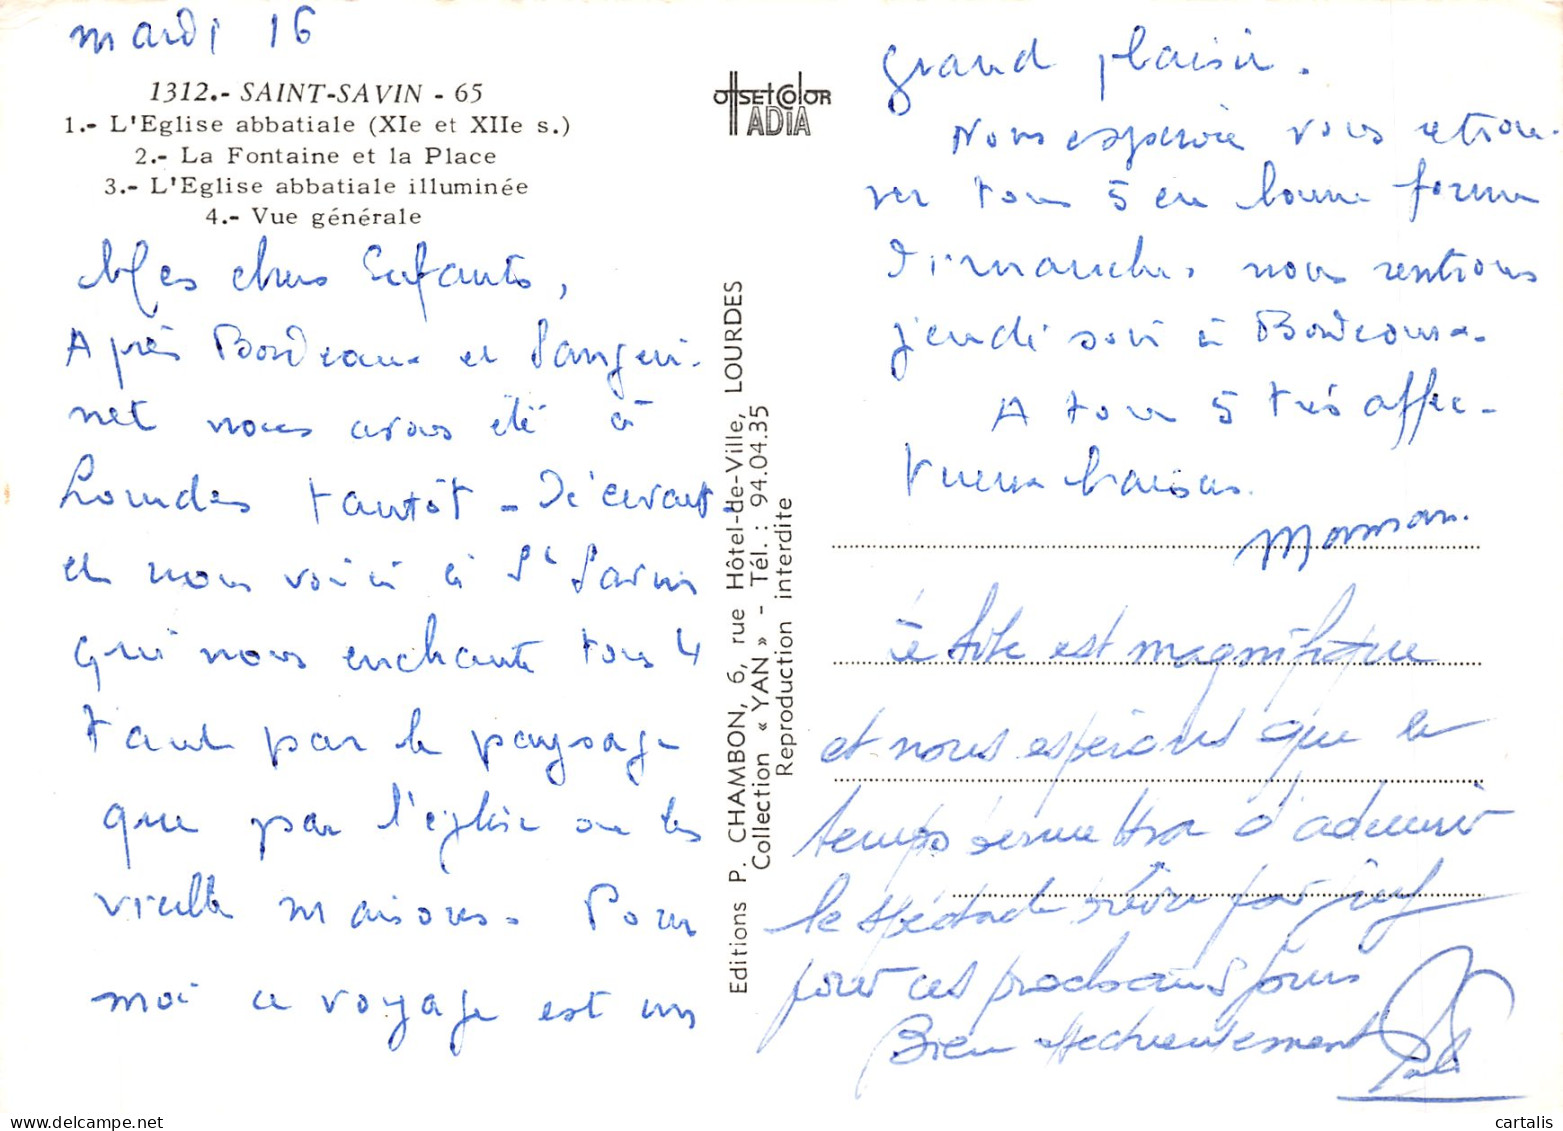 mardi 16
1312.- SAINT-SAVIN - 65
1.- L'Eglise abbatiale (XIe et XIIe s.)
2.- La Fontaine et la Place
3.- L'Eglise abbatiale illuminée
4.- Vue générale
Mes chers Enfants,
Après Bordeaux et Sangui-
net nous avons été à
Lourdes tantôt -
et nous voici à St Savin
qui nous enchante tous 4
tant par le paysage
que par l'église ou les
vieilles maisons. Pour
moi ce voyage est un
OffSET COlOR
ADIA
Editions P. CHAMBON, 6, rue Hôtel-de-Ville, LOURDES
Collection « YAN » - Tél. : 94.04.35
Reproduction interdite
grand plaisir.
Nous espérons vous retrou-
ver tous 5 en bonne forme
Dimanche, nous rentrons
jeudi soir à Bordeaux.
A tous 5 très affec-
tueux baisers.
Maman.
Le site est magnifique
et nous espérons que le
temps permettra d'admirer
le spectacle prévu par
pour ces prochains jours
Bien affectueusement